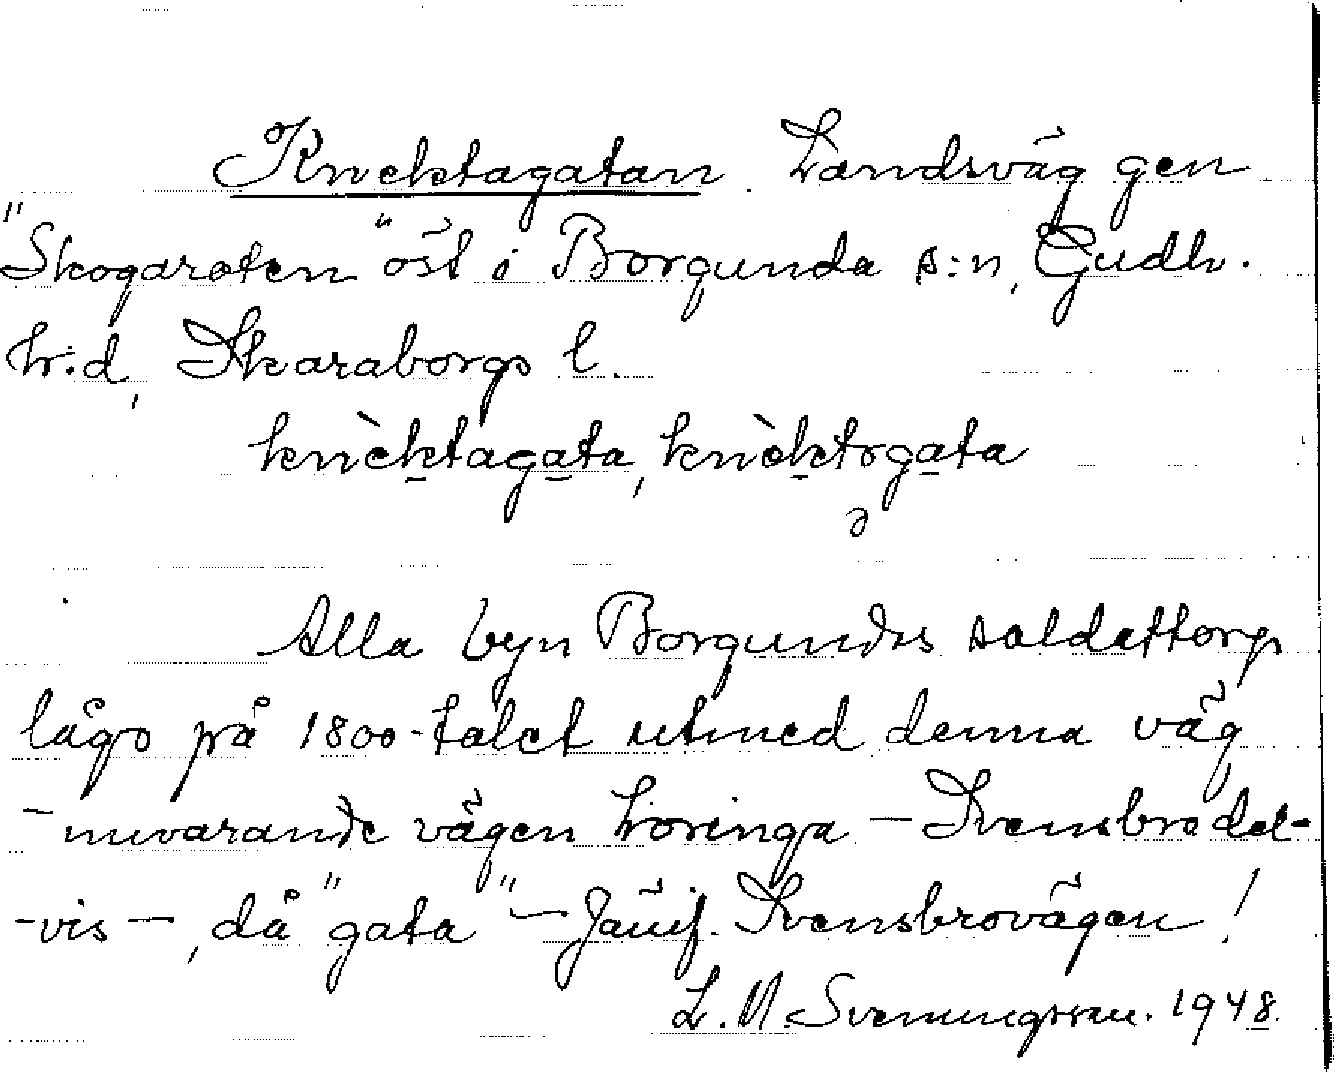 Knektagatan. Landsväg gen
"Skogaroten" öst i Borgunda s:n, Gudh.
h:d, Skaraborgs l.
knèktagata, knèktɤgata
ə
Alla byn Borgundas soldattorp
lågo på 1800-talet utmed denna väg
- nuvarande vägen Loringa - Svensbro del-
-vis -, då "gata" - Jämf. Svensbrovägen!
L. M. Svenungsson. 1948.